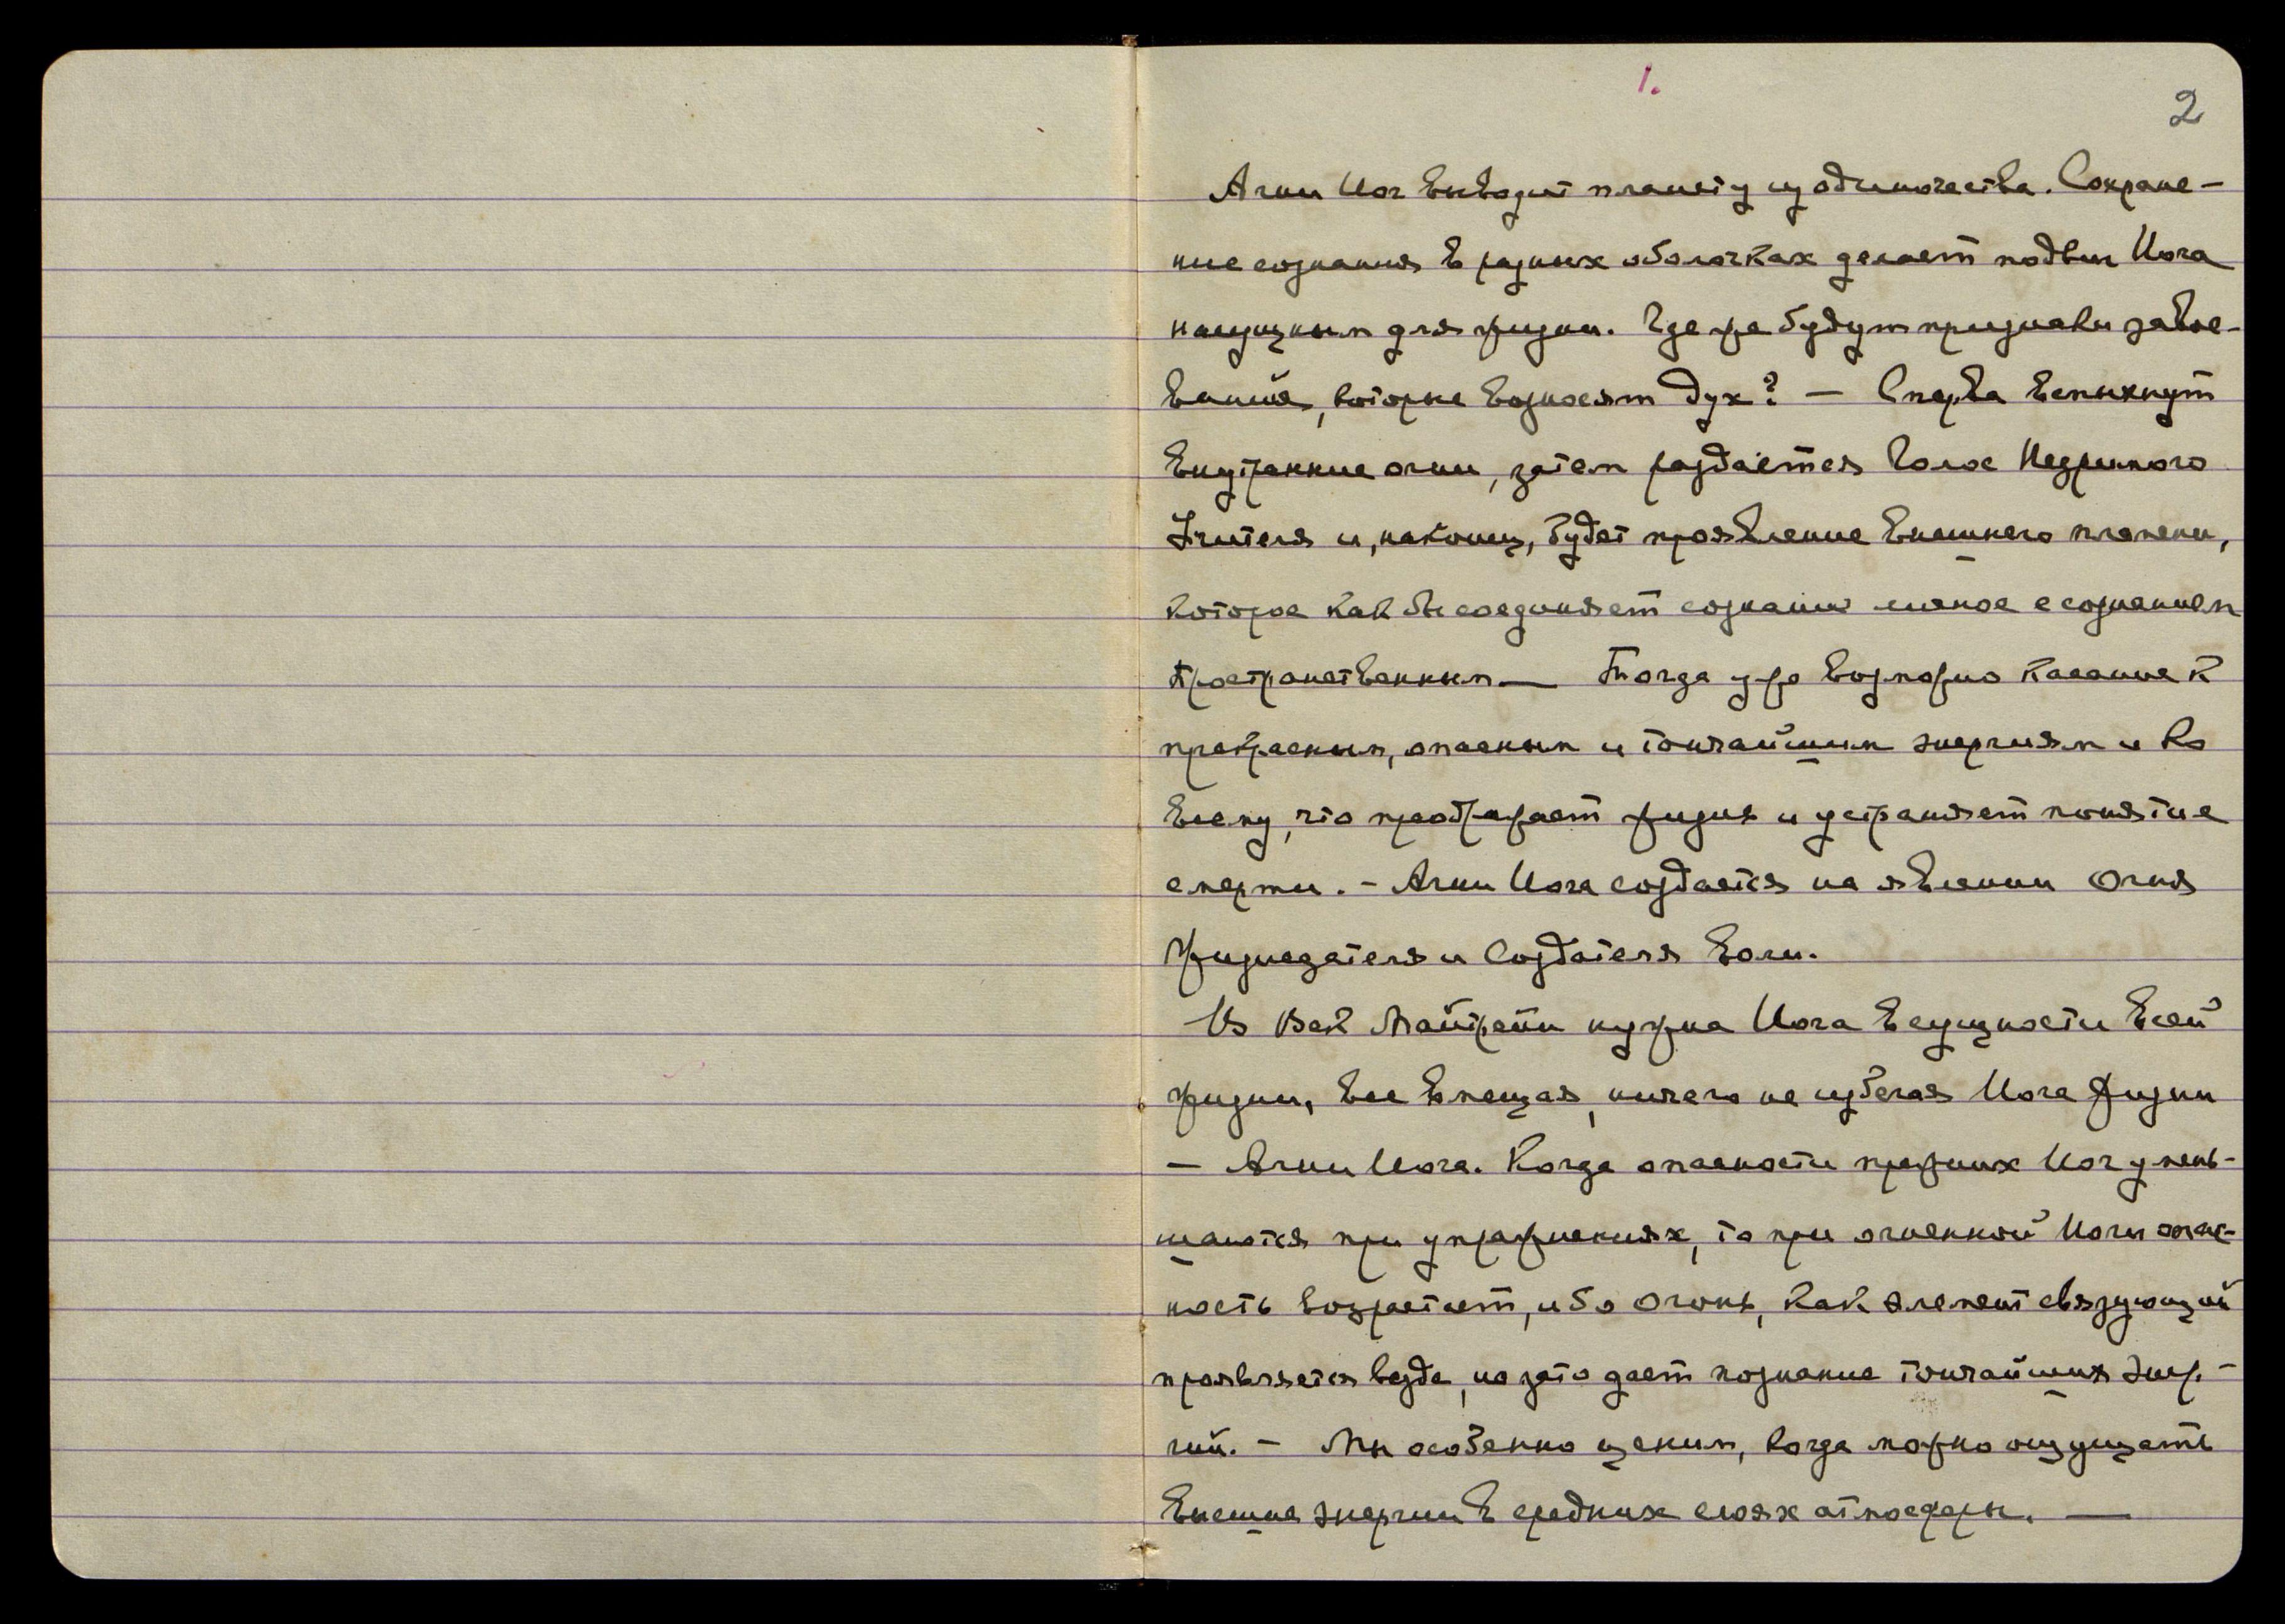 1.
2
Агни Иог выводит планету из одиночества. Сохране-
ние сознания в разных оболочках делает подвиг Иога
насущным для жизни. Где же будут признаки завое-
ваний, которые возносят дух? — Сперва вспыхнут
внутренние огни, затем раздается Голос Незримого
Учителя и, наконец, будет проявление внешнего пламени,
которое как бы соединяет сознание личное с сознанием
пространственным — Тогда уже возможно касание к
прекрасным, опасным и тончайшим энергиям и ко
всему, что преображает жизнь и устраняет понятие
смерти. – Агни Иога создается на явлении Огня
Жизнедателя и Создателя воли.
В Век Майтрейи нужна Иога в сущности всей
жизни, все вмещая, ничего не избегая Иога Жизни
— Агни Иога. Когда опасности прежних Иог умень-
шаются при упражнениях, то при огненной Иоги опас-
ность возрастает, ибо огонь, как элемент связующий
проявляется везде, но зато дает познание тончайших энер-
гий. – Мы особенно ценим, когда можно ощущать
внешние энергии в средних слоях атмосферы. —